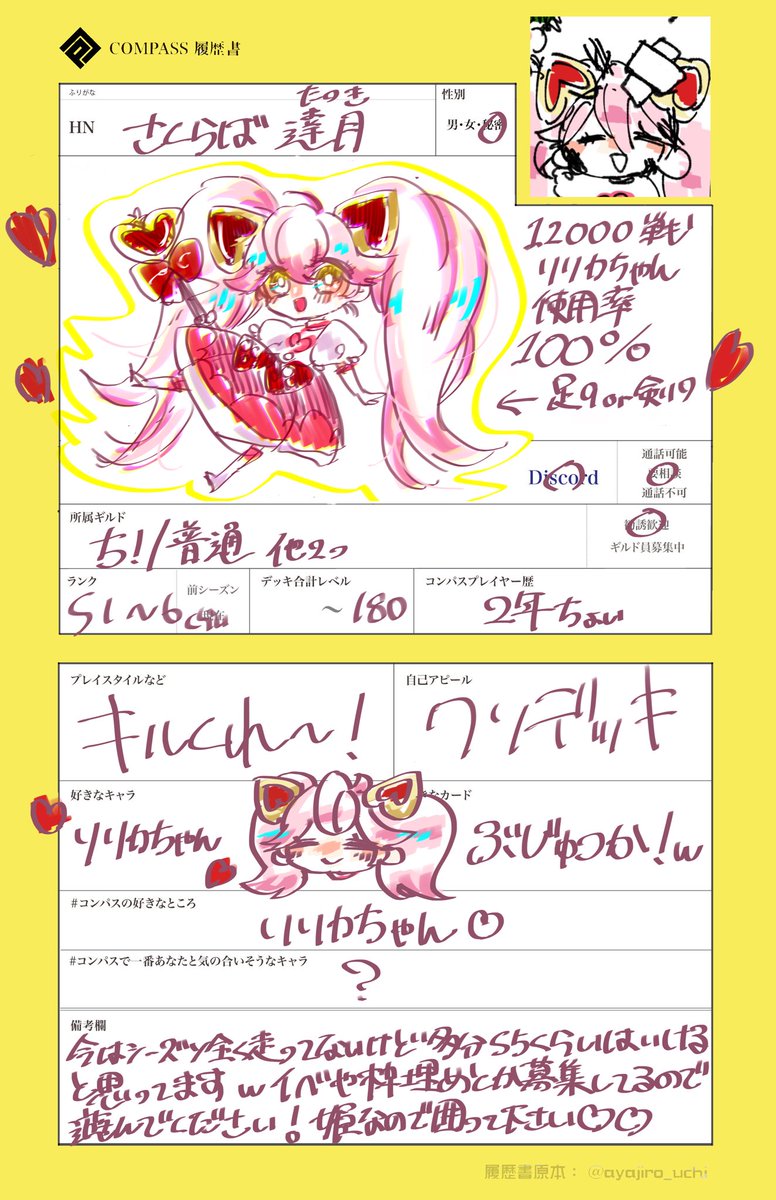 COMPASS 履歴書
ふりがな
たつき
HN さくらば 達月
性別
男・女・秘密
12000戦も
リリカちゃん
使用率
100%
← 足9or
Discord
通話可能
要相談
通話不可
所属ギルド
ち!/普通 他2つ
勧誘歓迎
ギルド員募集中
ランク
S1〜6
前シーズン
デッキ合計レベル
〜180
コンパスプレイヤー歴
2年ちょい
プレイスタイルなど
キルくれ〜!
自己アピール
ワンデッキ
好きなキャラ
リリカちゃん
なカード
ぶじゅつか!w
#コンパスの好きなところ
リリカちゃん♡
#コンパスで一番あなたと気の合いそうなキャラ
?
備考欄
今はシーズン全く走ってないけど多分S5くらいはいける
と思ってますw イベや枠埋めとか募集してるので
遊んでください! 姫なので囲って下さい♡♡
履歴書原本: @ayajiro_uchi